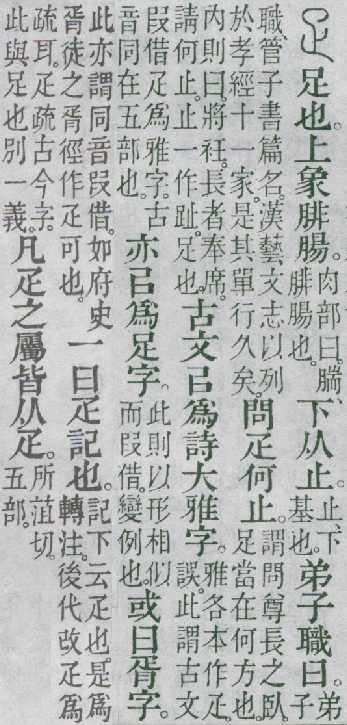 疋足也。上象腓腸。肉部曰。腨、腓腸也。下从止。止、下基也。弟子職曰。弟子
職、管子書篇名。漢藝文志以列於孝經十一家。是其單行久矣。問疋何止。謂問尊長之臥足當在何方也
內則曰。將衽。長者奉席。請何止。止一作趾。足也。古文㠯爲詩大雅字。雅各本作疋誤。此謂古文
叚借疋爲雅字。古音同在五部也。亦㠯爲足字。此則以形相似而叚借。變例也。或曰胥字。
此亦謂同音叚借。如府史胥徒之胥徑作疋可也。一曰疋記也。記下云疋也。是爲轉注。後代改疋爲
疏耳。疋疏古今字。此與足也別一義。凡疋之屬皆从疋。所菹切。五部。